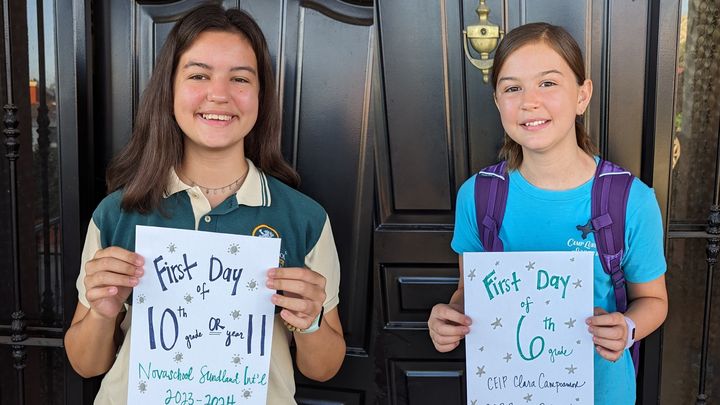 First Day
of
10th grade OR year 11
Novaschool Sundland Int'l
2023-2024
First Day
of
6th grade
CEIP Clara Campoamor